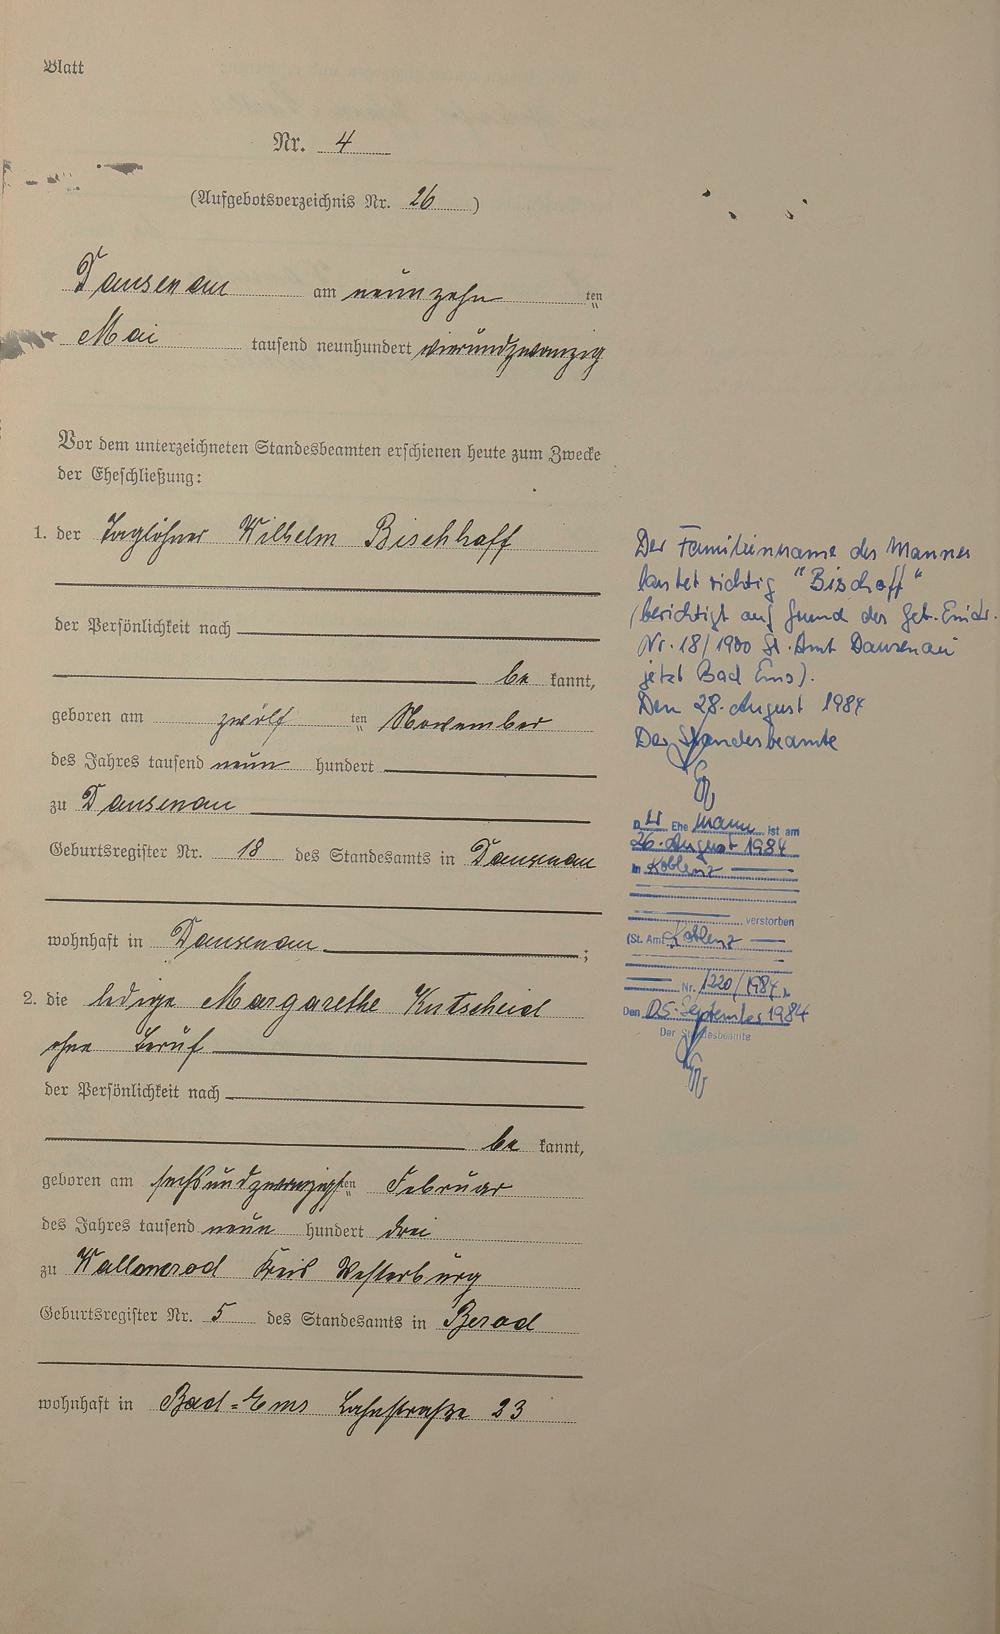 Blatt
Nr. 4
(Aufgebotsverzeichnis Nr. 26)
Dausenau am neunzehnten
Mai tausend neunhundert vierundzwanzig
Vor dem unterzeichneten Standesbeamten erschienen heute zum Zwecke
der Eheschließung:
1. der Taglöhner Wilhelm Bischhoff
der Persönlichkeit nach
be kannt,
geboren am zwölften November
des Jahres tausend neun hundert
zu Dausenau
Geburtsregister Nr. 18 des Standesamts in Dausenau
wohnhaft in Dausenau ;
2. die ledige Margarethe Kutscheid
ohne Beruf
der Persönlichkeit nach
be kannt,
geboren am sechsundzwanzigsten Februar
des Jahres tausend neun hundert drei
zu Wallmerod Kreis Westerburg
Geburtsregister Nr. 5 des Standesamts in Berod
wohnhaft in Bad-Ems Lahnstraße 23
Der Familienname des Mannes
lautet richtig "Bischoff"
(berichtigt auf Grund des Geb. Eintr.
Nr. 18/1900 St. Amt Dausenau
jetzt Bad Ems).
Den 28. August 1984
Der Standesbeamte
Der Ehemann ist am
26. August 1984
in Koblenz
verstorben
(St. Amt Koblenz
Nr. 1220/1984)
Den 05. September 1984
Der Standesbeamte